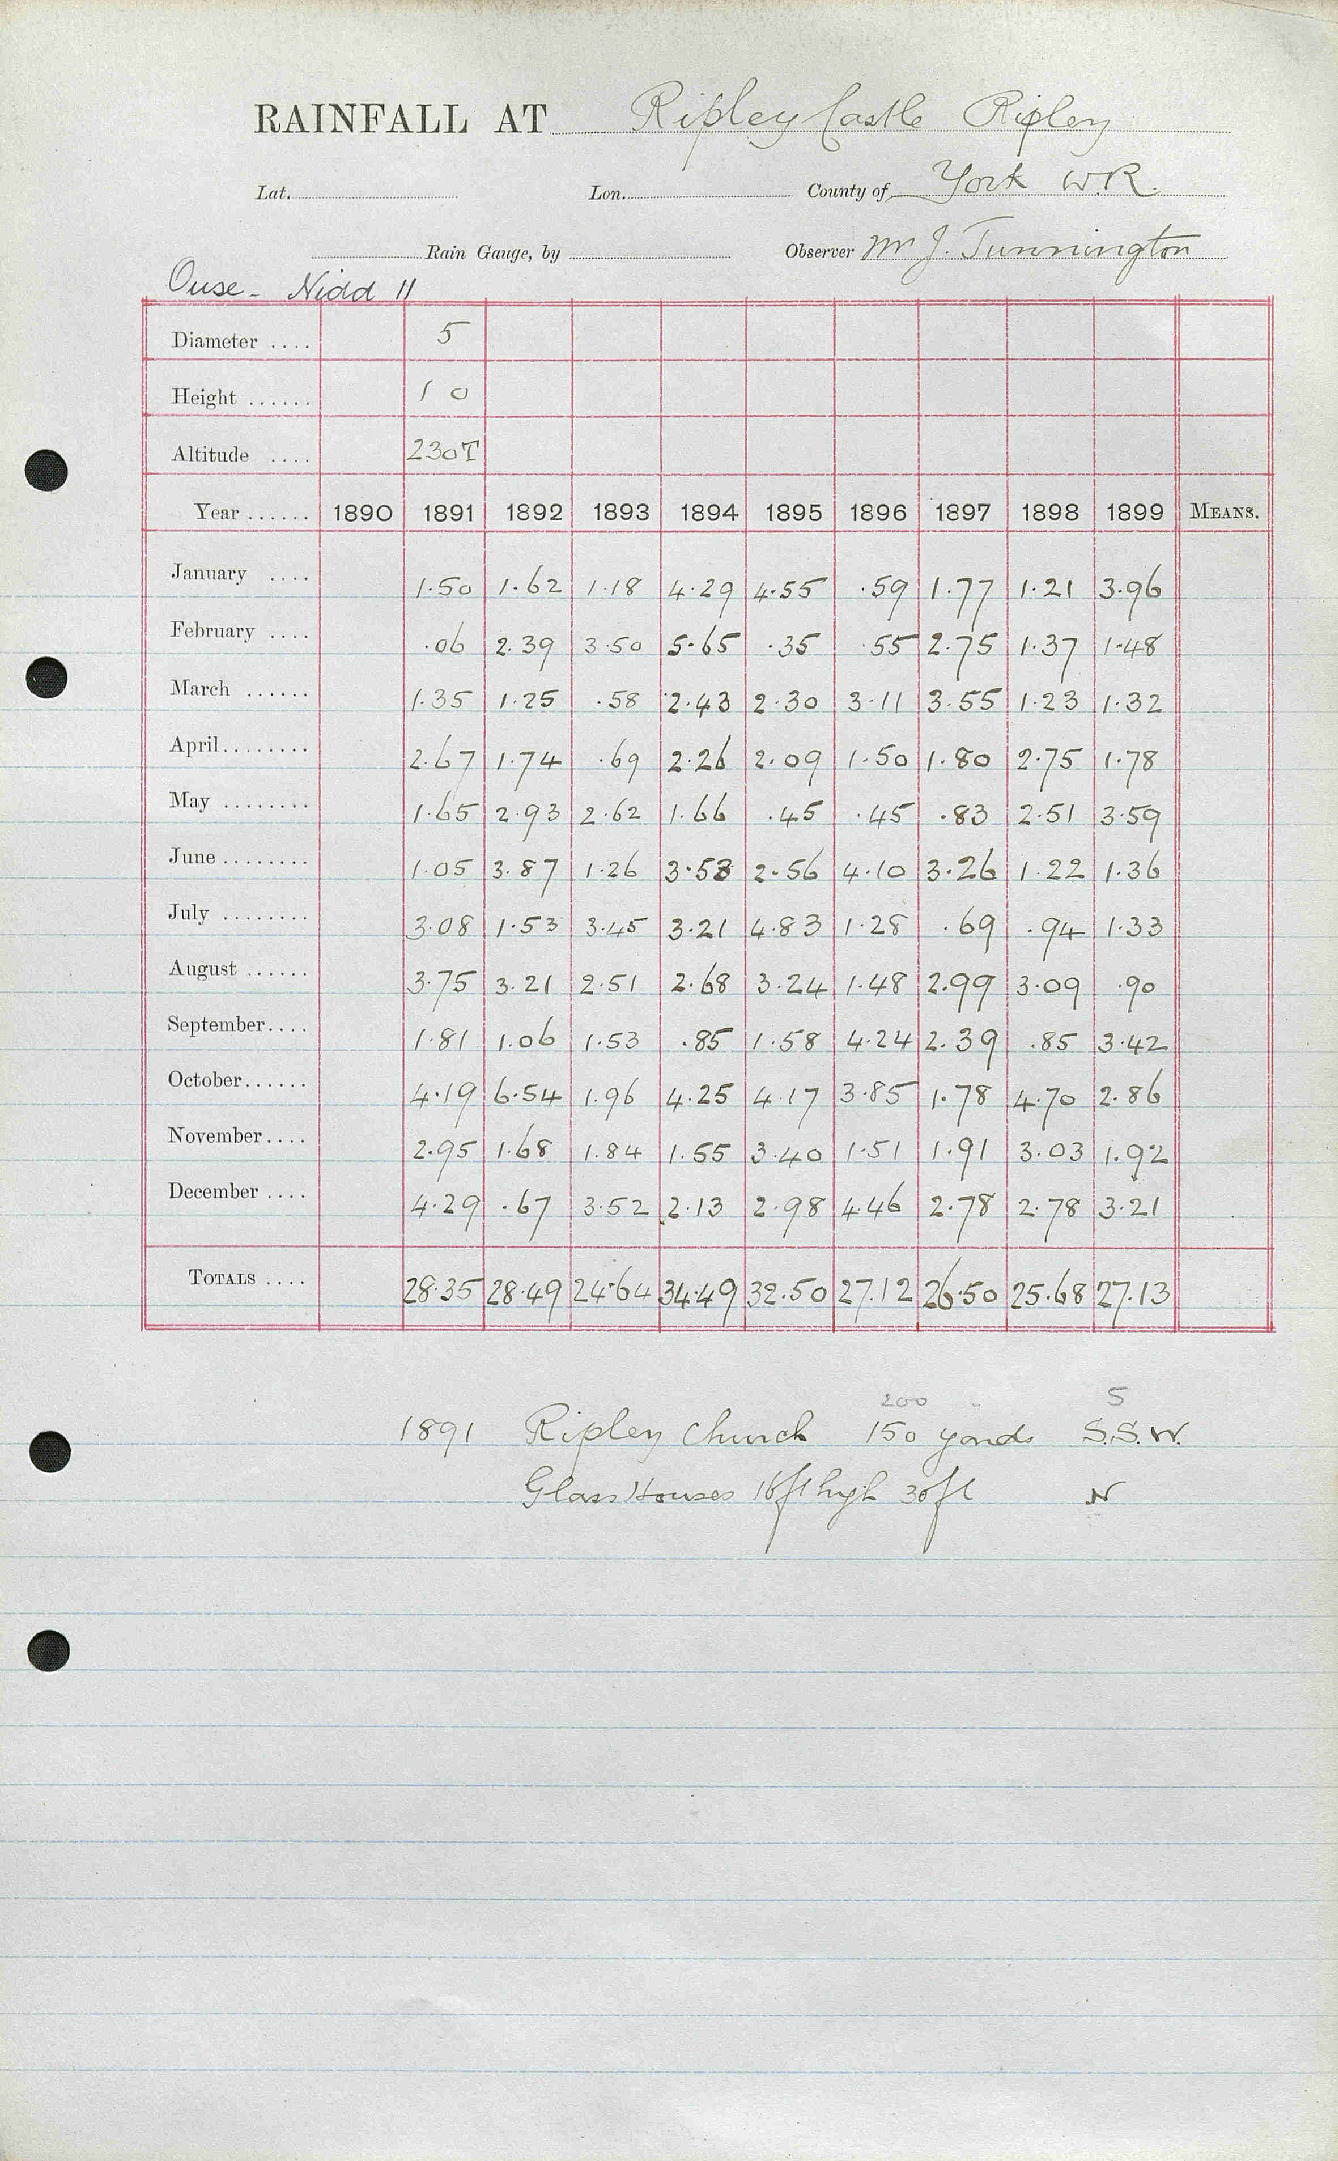 RAINFALL AT Ripley Castle Ripley
Lat. Lon. County of York W.R.
Rain Gauge, by Observer Mr J. Tunnington
Ouse - Nidd 11
Diameter .... 5
Height ...... 1 0
Altitude .... 230T
Year ...... 1890 1891 1892 1893 1894 1895 1896 1897 1898 1899 MEANS.
January .... 1.50 1.62 1.18 4.29 4.55 .59 1.77 1.21 3.96
February .... .06 2.39 3.50 5.65 .35 .55 2.75 1.37 1.48
March ...... 1.35 1.25 .58 2.43 2.30 3.11 3.55 1.23 1.32
April........ 2.67 1.74 .69 2.26 2.09 1.50 1.80 2.75 1.78
May ........ 1.65 2.93 2.62 1.66 .45 .45 .83 2.51 3.59
June ........ 1.05 3.87 1.26 3.53 2.56 4.10 3.26 1.22 1.36
July ........ 3.08 1.53 3.45 3.21 4.83 1.28 .69 .94 1.33
August ...... 3.75 3.21 2.51 2.68 3.24 1.48 2.99 3.09 .90
September.... 1.81 1.06 1.53 .85 1.58 4.24 2.39 .85 3.42
October...... 4.19 6.54 1.96 4.25 4.17 3.85 1.78 4.70 2.86
November.... 2.95 1.68 1.84 1.55 3.40 1.51 1.91 3.03 1.92
December .... 4.29 .67 3.52 2.13 2.98 4.46 2.78 2.78 3.21
TOTALS .... 28.35 28.49 24.64 34.49 32.50 27.12 26.50 25.68 27.13
200 S
1891 Ripley Church 150 yards S.S.W.
Glass Houses 16ft high 30ft N